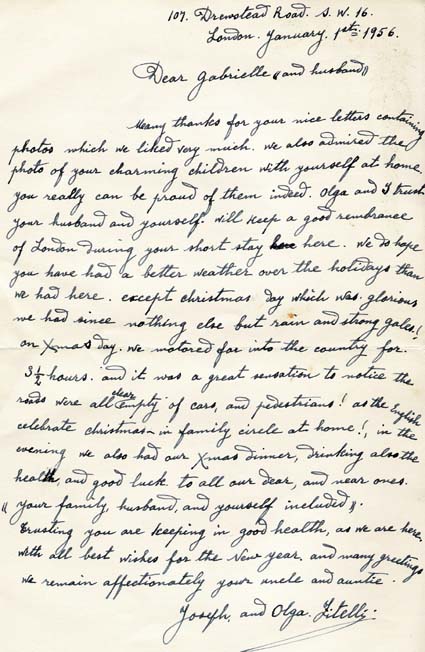 107. Drewstead Road. S. W. 16.
London. January. 1st. 1956.
Dear Gabrielle "and husband"
Many thanks for your nice letters containing
photos which we liked very much. we also admired the
photo of your charming children with yourself at home
you really can be proud of them indeed. Olga and I trust
your husband and yourself. will keep a good rembrance
of London during your short stay here. we do hope
you have had a better weather over the holidays than
we had here. except christmas day which was glorious
we had since nothing else but rain and strong gales!
on Xmas day. we motored far into the country for.
3½ hours. and it was a great sensation to notice the
roads were all clear empty of cars, and pedestrians! as the English
celebrate christmas in family circle at home!, in the
evening we also had our Xmas dinner, drinking also the
health, and good luck to all our dear, and near ones.
"your family, husband, and yourself included".
trusting you are keeping in good health, as we are here.
with all best wishes for the New year. and many greetings
we remain affectionately your uncle and auntie.
Joseph, and Olga.